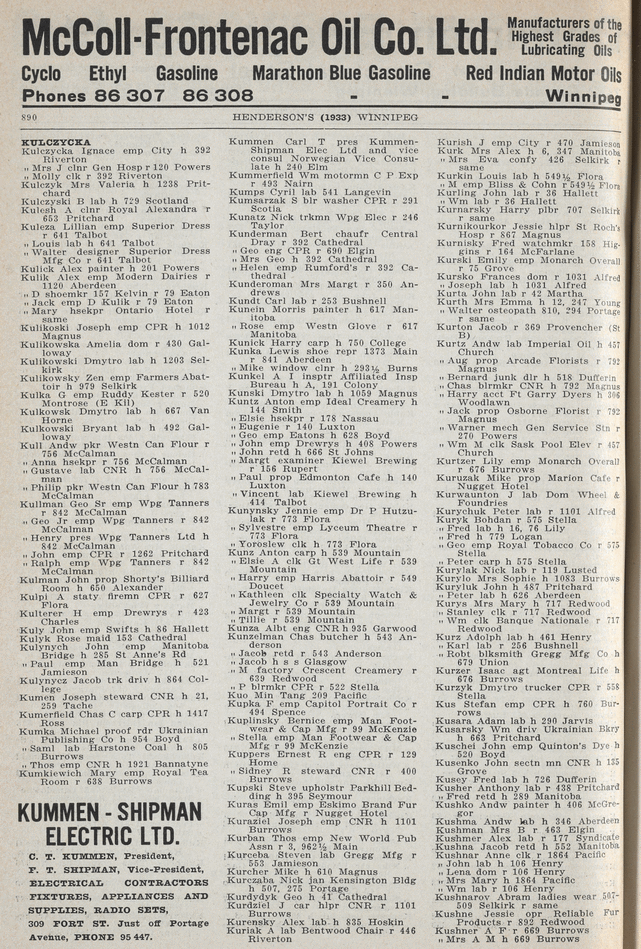 McColl-Frontenac Oil Co. Ltd.
Manufacturers of the
Highest Grades of
Lubricating Oils
Cyclo Ethyl Gasoline Marathon Blue Gasoline Red Indian Motor Oils
Phones 86 307 86 308 - - Winnipeg
890 HENDERSON'S (1933) WINNIPEG
KULCZYCKA
Kulczycka Ignace emp City h 392
Riverton
„ Mrs J clnr Gen Hosp r 120 Powers
„ Molly clk r 392 Riverton
Kulczyk Mrs Valeria h 1238 Prit-
chard
Kulczyski B lab h 729 Scotland
Kulesh A clnr Royal Alexandra r
653 Pritchard
Kuleza Lillian emp Superior Dress
r 641 Talbot
„ Louis lab h 641 Talbot
„ Walter designer Superior Dress
Mfg Co r 641 Talbot
Kulick Alex painter h 201 Powers
Kulik Alex emp Modern Dairies r
1120 Aberdeen
„ D shoemkr 157 Kelvin r 79 Eaton
„ Jack emp D Kulik r 79 Eaton
„ Mary hsekpr Ontario Hotel r
same
Kulikoski Joseph emp CPR h 1012
Magnus
Kulikowska Amelia dom r 430 Gal-
loway
Kulikowski Dmytro lab h 1203 Sel-
kirk
Kulikowsky Zen emp Farmers Abat-
toir h 979 Selkirk
Kulka G emp Ruddy Kester r 520
Montrose (E Kil)
Kulkowsk Dmytro lab h 667 Van
Horne
Kulkowski Bryant lab h 492 Gal-
loway
Kull Andw pkr Westn Can Flour r
756 McCalman
„ Anna hsekpr r 756 McCalman
„ Gustave lab CNR h 756 McCal-
man
„ Philip pkr Westn Can Flour h 783
McCalman
Kullman Geo Sr emp Wpg Tanners
r 842 McCalman
„ Geo Jr emp Wpg Tanners r 842
McCalman
„ Henry pres Wpg Tanners Ltd h
842 McCalman
„ John emp CPR r 1262 Pritchard
„ Ralph emp Wpg Tanners r 842
McCalman
Kulman John prop Shorty's Billiard
Room h 650 Alexander
Kulpi A staty firemn CPR r 627
Flora
Kulterer H emp Drewrys r 423
Charles
Kuly John emp Swifts h 86 Hallett
Kulyk Rose maid 153 Cathedral
Kulynych John emp Manitoba
Bridge h 285 St Anne's Rd
„ Paul emp Man Bridge h 521
Jamieson
Kulynycz Jacob trk driv h 864 Col-
lege
Kumen Joseph steward CNR h 21,
259 Tache
Kumerfield Chas C carp CPR h 1417
Ross
Kumka Michael proof rdr Ukranian
Publishing Co h 954 Boyd
„ Saml lab Harstone Coal h 805
Burrows
„ Thos emp CNR h 1921 Bannatyne
Kumkiewich Mary emp Royal Tea
Room r 638 Burrows
KUMMEN - SHIPMAN
ELECTRIC LTD.
C. T. KUMMEN, President,
F. T. SHIPMAN, Vice-President,
ELECTRICAL CONTRACTORS
FIXTURES, APPLIANCES AND
SUPPLIES, RADIO SETS,
309 FORT ST. Just off Portage
Avenue, PHONE 95 447.
Kummen Carl T pres Kummen-
Shipman Elec Ltd and vice
consul Norwegian Vice Consu-
late h 240 Elm
Kummerfield Wm motormn C P Exp
r 493 Nairn
Kumps Cyril lab 541 Langevin
Kumsarzak S blr washer CPR r 291
Scotia
Kunatz Nick trkmn Wpg Elec r 246
Taylor
Kunderman Bert chaufr Central
Dray r 392 Cathedral
„ Geo eng CPR r 690 Elgin
„ Mrs Geo h 392 Cathedral
„ Helen emp Rumford's r 392 Ca-
thedral
Kunderoman Mrs Margt r 350 An-
drews
Kundt Carl lab r 253 Bushnell
Kunein Morris painter h 617 Man-
itoba
„ Rose emp Westn Glove r 617
Manitoba
Kunick Harry carp h 750 College
Kunka Lewis shoe repr 1373 Main
r 841 Aberdeen
„ Mike window clnr h 293½ Burns
Kunkel A I insptr Affiliated Insp
Bureau h A, 191 Colony
Kunski Dmytro lab h 1059 Magnus
Kuntz Anton emp Ideal Creamery h
144 Smith
„ Elsie hsekpr r 178 Nassau
„ Eugenie r 140 Luxton
„ Geo emp Eatons h 628 Boyd
„ John emp Drewrys h 408 Powers
„ John retd h 666 St Johns
„ Margt examiner Kiewel Brewing
r 156 Rupert
„ Paul prop Edmonton Cafe h 140
Luxton
„ Vincent lab Kiewel Brewing h
414 Talbot
Kunynsky Jennie emp Dr P Hutzu-
lak r 773 Flora
„ Sylvestre emp Lyceum Theatre r
773 Flora
„ Yoroslew clk h 773 Flora
Kunz Anton carp h 539 Mountain
„ Elsie A clk Gt West Life r 539
Mountain
„ Harry emp Harris Abattoir r 549
Doucet
„ Kathleen clk Specialty Watch &
Jewelry Co r 539 Mountain
„ Margt r 539 Mountain
„ Tillie r 539 Mountain
Kunza Albt eng CNR h 935 Garwood
Kunzelman Chas butcher h 543 An-
derson
„ Jacob retd r 543 Anderson
„ Jacob h s s Glasgow
„ M factory Crescent Creamery r
639 Redwood
„ P blrmkr CPR r 522 Stella
Kuo Min Tang 209 Pacific
Kupka F emp Capitol Portrait Co r
494 Spence
Kuplinsky Bernice emp Man Foot-
wear & Cap Mfg r 99 McKenzie
„ Stella emp Man Footwear & Cap
Mfg r 99 McKenzie
Kuppers Ernest R eng CPR r 129
Home
„ Sidney R steward CNR r 400
Burrows
Kupski Steve upholstr Parkhill Bed-
ding h 395 Seymour
Kuras Emil emp Eskimo Brand Fur
Cap Mfg r Nugget Hotel
Kuraziel Joseph emp CNR h 1101
Burrows
Kurban Thos emp New World Pub
Assn r 3, 962½ Main
Kurceba Steven lab Gregg Mfg r
553 Jamieson
Kurcher Mike h 610 Magnus
Kurczaba Nick jan Kensington Bldg
h 507, 275 Portage
Kurdydyk Geo h 41 Cathedral
Kurdziel J car hlpr CNR r 1101
Burrows
Kurensky Alex lab h 835 Hoskin
Kuriak A lab Bentwood Chair r 446
Riverton
Kurish J emp City r 470 Jamieson
Kurk Mrs Alex h 6, 347 Manitoba
„ Mrs Eva confy 426 Selkirk r
same
Kurkin Louis lab h 549½ Flora
„ M emp Bliss & Cohn r 549½ Flora
Kurling John lab r 36 Hallett
„ Wm lab r 36 Hallett
Kurnarsky Harry plbr 707 Selkirk
r same
Kurnikourkor Jessie hlpr St Roch's
Hosp r 867 Magnus
Kurnisky Fred watchmkr 158 Hig-
gins r 164 McFarlane
Kurski Emily emp Monarch Overall
r 75 Grove
Kursko Frances dom r 1031 Alfred
„ Joseph lab h 1031 Alfred
Kurta John lab r 42 Martha
Kurth Mrs Emma h 12, 247 Young
„ Walter osteopath 810, 294 Portage
r same
Kurton Jacob r 369 Provencher (St
B)
Kurtz Andw lab Imperial Oil h 457
Church
„ Aug prop Arcade Florists r 792
Magnus
„ Bernard junk dlr h 518 Dufferin
„ Chas blrmkr CNR h 792 Magnus
„ Harry acct Ft Garry Dyers h 306
Woodlawn
„ Jack prop Osborne Florist r 792
Magnus
„ Warner mech Gen Service Stn r
270 Powers
„ Wm M clk Sask Pool Elev r 457
Church
Kurtzer Lily emp Monarch Overall
r 676 Burrows
Kuruzak Mike prop Marion Cafe r
Nugget Hotel
Kurwaunton J lab Dom Wheel &
Foundries
Kurychuk Peter lab r 1101 Alfred
Kuryk Bohdan r 575 Stella
„ Fred lab h 16, 76 Lily
„ Fred h 779 Logan
„ Geo emp Royal Tobacco Co r 575
Stella
„ Peter carp h 575 Stella
Kurylak Nick lab r 119 Lusted
Kurylo Mrs Sophie h 1083 Burrows
Kuryluk John h 487 Pritchard
„ Peter lab h 626 Aberdeen
Kurys Mrs Mary h 717 Redwood
„ Stanley clk r 717 Redwood
„ Wm clk Banque Nationale r 717
Redwood
Kurz Adolph lab h 461 Henry
„ Karl lab r 256 Bushnell
„ Robt blksmith Gregg Mfg Co h
679 Union
Kurzer Isaac agt Montreal Life h
676 Burrows
Kurzyk Dmytro trucker CPR r 558
Stella
Kus Stefan emp CPR h 760 Bur-
rows
Kusara Adam lab h 290 Jarvis
Kusarsky Wm driv Ukranian Bkry
h 663 Pritchard
Kuschei John emp Quinton's Dye h
520 Boyd
Kusenko John sectn mn CNR h 135
Grove
Kusey Fred lab h 726 Dufferin
Kusher Anthony lab r 438 Pritchard
„ Fred retd h 289 Manitoba
Kushko Andw painter h 406 McGre-
gor
Kushma Andw lab h 346 Aberdeen
Kushman Mrs B r 463 Elgin
Kushmer Alex lab r 177 Syndicate
Kushna Jacob retd h 552 Manitoba
Kushnar Anne clk r 1864 Pacific
„ John lab h 106 Henry
„ Lena dom r 106 Henry
„ Mrs Mary h 1864 Pacific
„ Wm lab r 106 Henry
Kushnarov Abram ladies wear 507-
509 Selkirk r same
Kushne Jessie opr Reliable Fur
Products r 892 Redwood
Kushner A F r 669 Burrows
„ Mrs A M h 669 Burrows